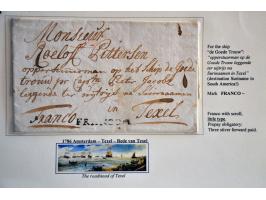 Monsieur
Roeloff Pittersen
opperstuurman op het schip de Goede
trouw
leggende ter
in Texel
Franco FRANCO
1786 Amsterdam - Texel - Rede van Texel
The roadstead of Texel
For the ship
"de Goede Trouw"
"opperstuurman op de
Goede Trouw leggende
ter
Surinaamen in Texel"
(destination Suriname in
South America!)
Mark FRANCO -
Franco with scroll,
little type.
Prepay obligatory:
Three silver forward paid.